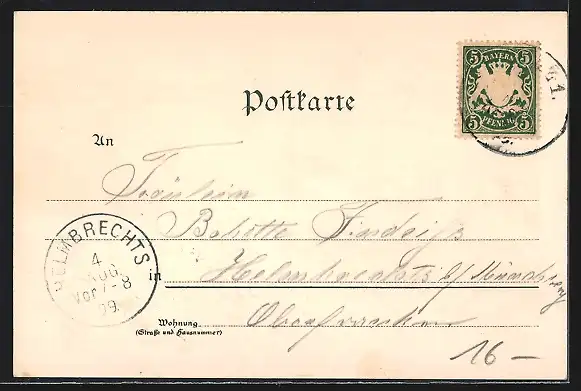 5 BAYERN 5
5 PFENNIG 5
1.
Postkarte
An
Fräulein
Babette
HELMBRECHTS
4
AUG.
Vor 7-8
09.
in Helmbrechts b/
Wohnung
(Straße und Hausnummer)
Oberfranken
16-